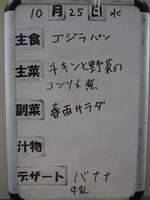 10月25日 水
主食 ゴジラパン
主菜 チキンと野菜の
コンソメ煮
副菜 春雨サラダ
汁物
デザート バナナ
牛乳